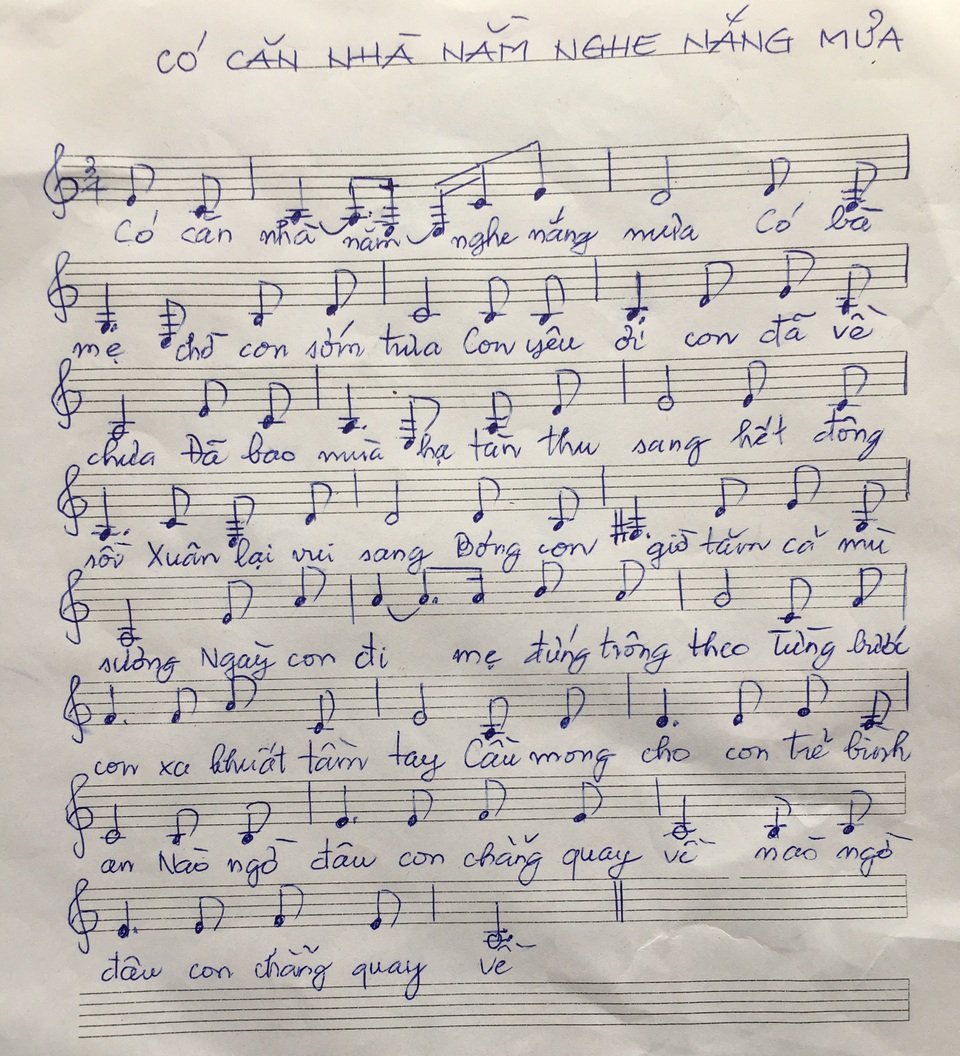 CÓ CĂN NHÀ NẰM NGHE NẮNG MƯA
3/4
Có căn nhà nằm nghe nắng mưa Có bà
mẹ chờ con sớm trưa Con yêu ơi con đã về
chưa Đã bao mùa hạ tàn thu sang hết đông
rồi Xuân lại vui sang Bóng con giờ tăm cá mù
sương Ngày con đi mẹ đứng trông theo Từng bước
con xa khuất tầm tay Cầu mong cho con trẻ bình
an Nào ngờ đâu con chẳng quay về nào ngờ
đâu con chẳng quay về